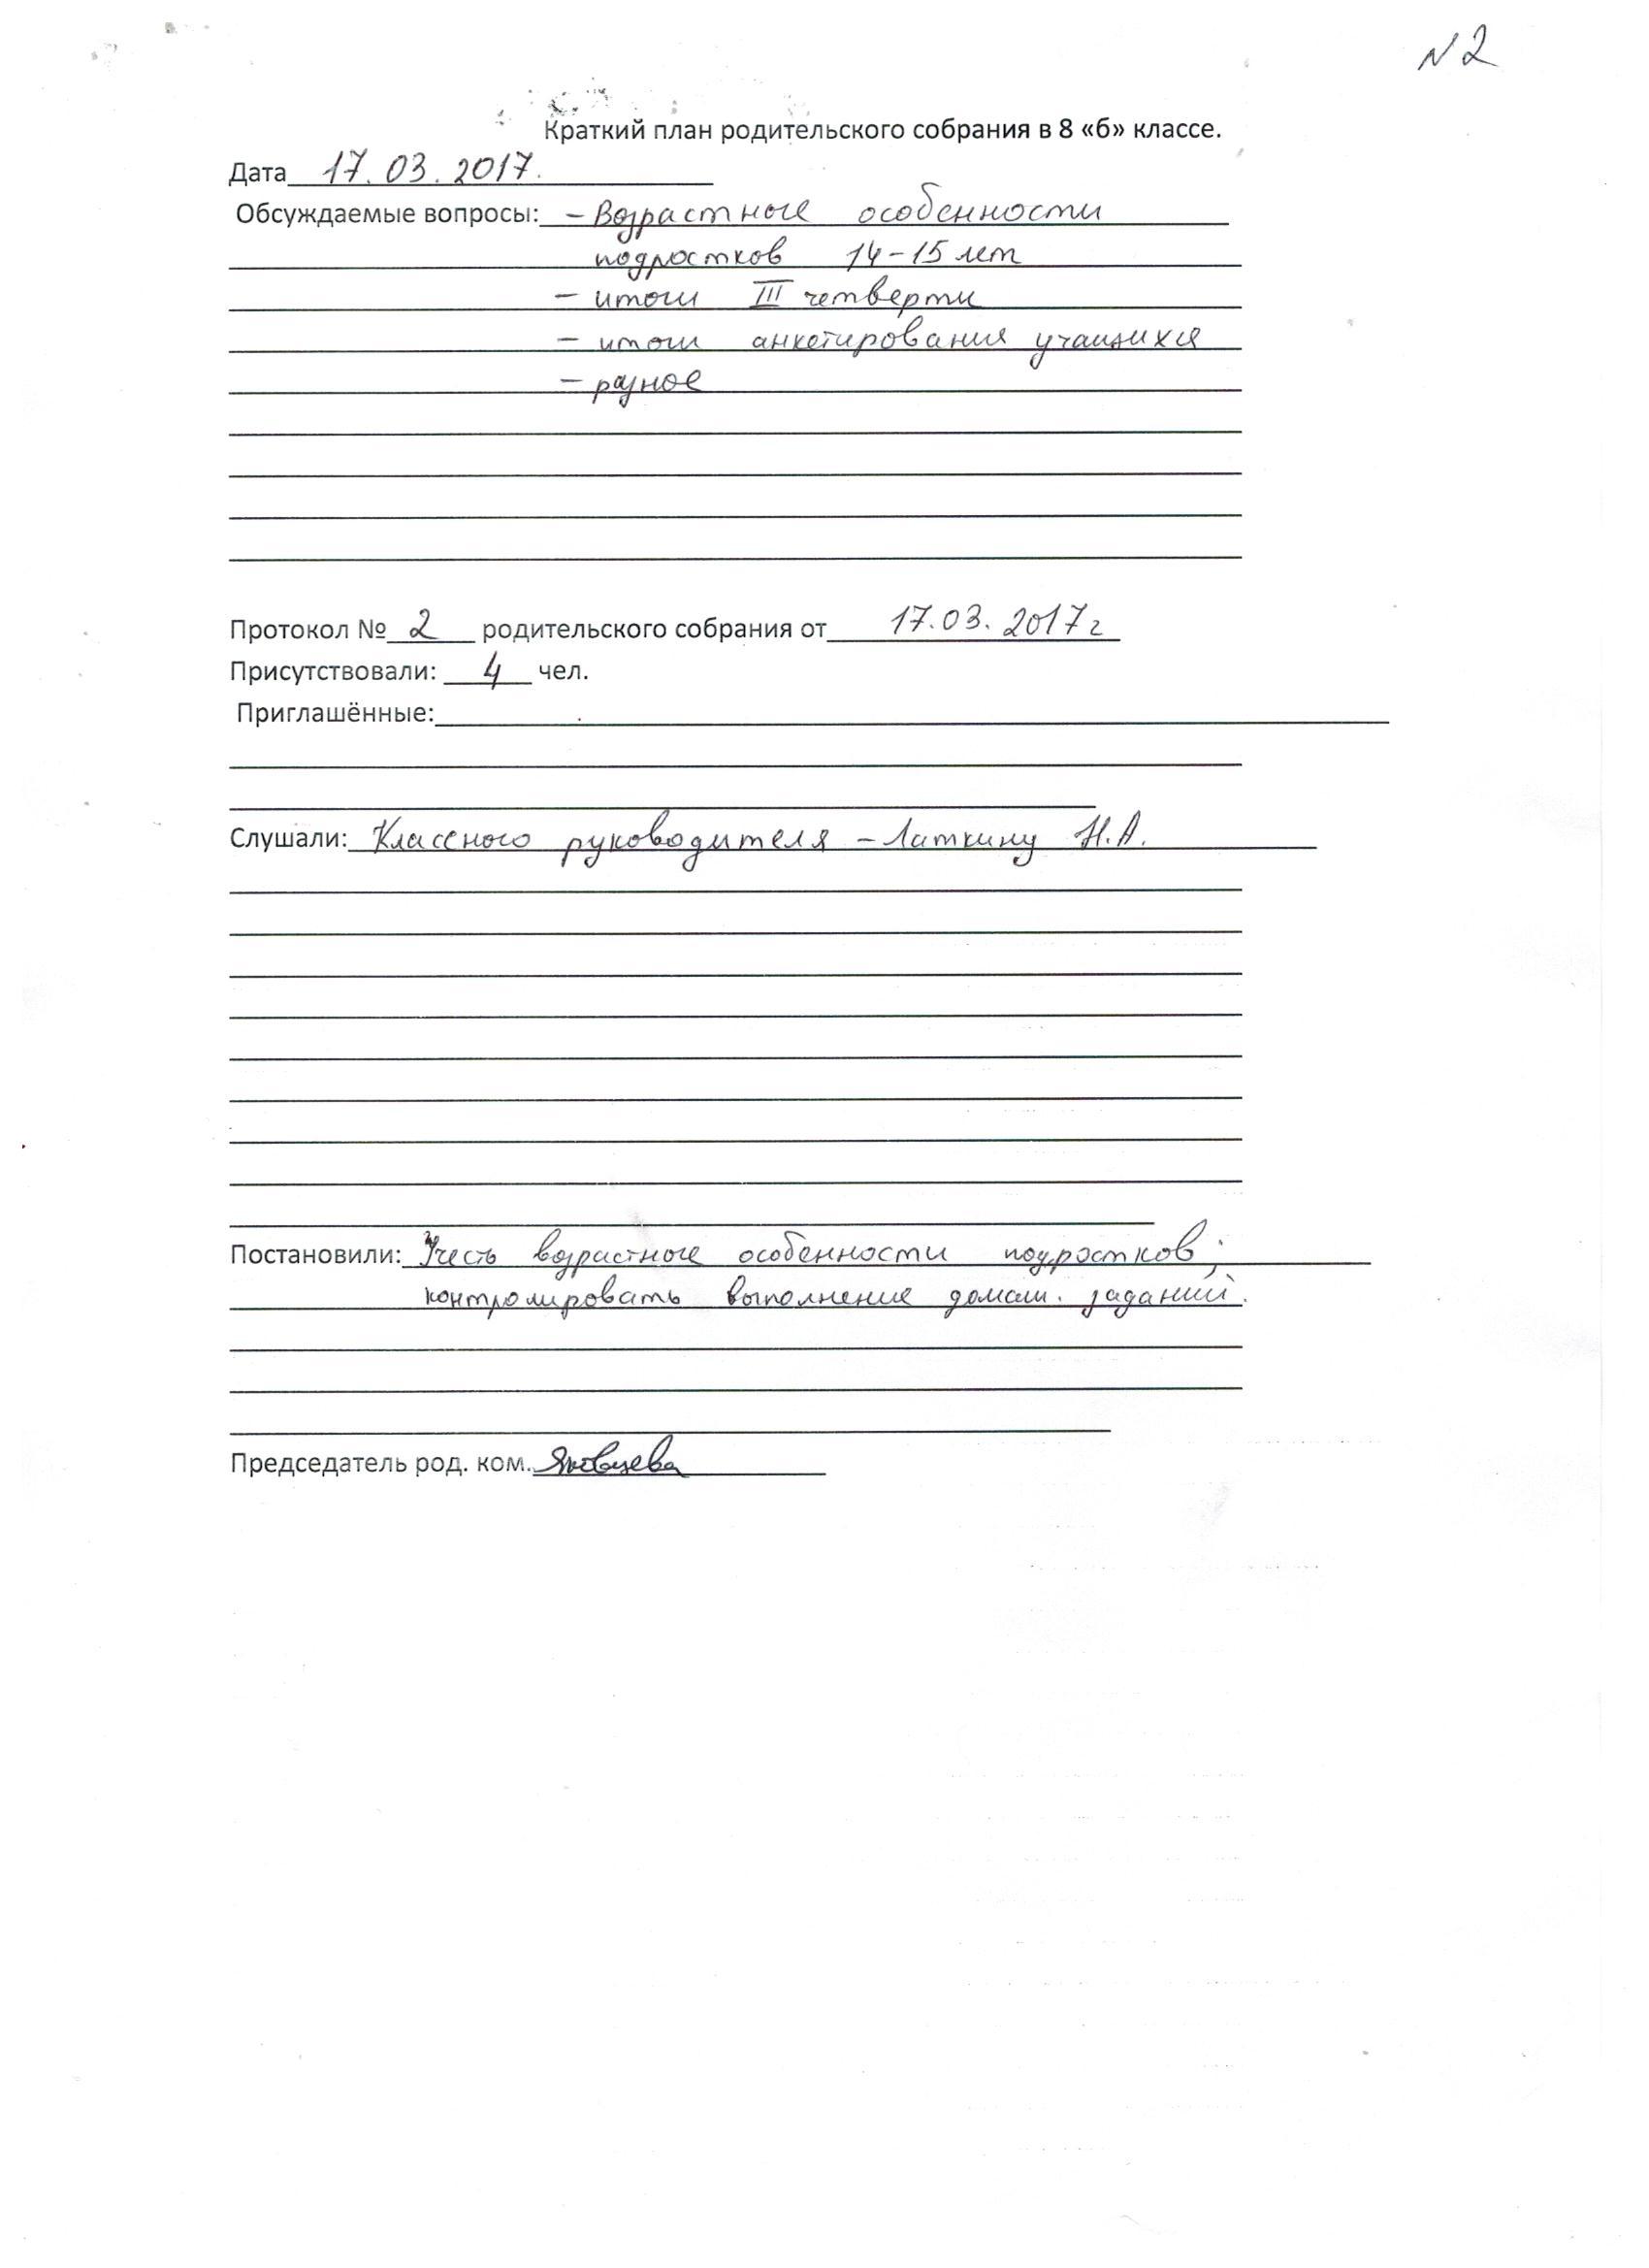 N 2
Краткий план родительского собрания в 8 «б» классе.
Дата 17.03.2017.
Обсуждаемые вопросы: – Возрастные особенности
подростков 14-15 лет
– итоги III четверти
– итоги анкетирования учащихся
– разное
Протокол № 2 родительского собрания от 17.03.2017г
Присутствовали: 4 чел.
Приглашённые:
Слушали: Классного руководителя – Латкину Н.А.
Постановили: Учесть возрастные особенности подростков;
контролировать выполнение домаш. заданий.
Председатель род. ком.